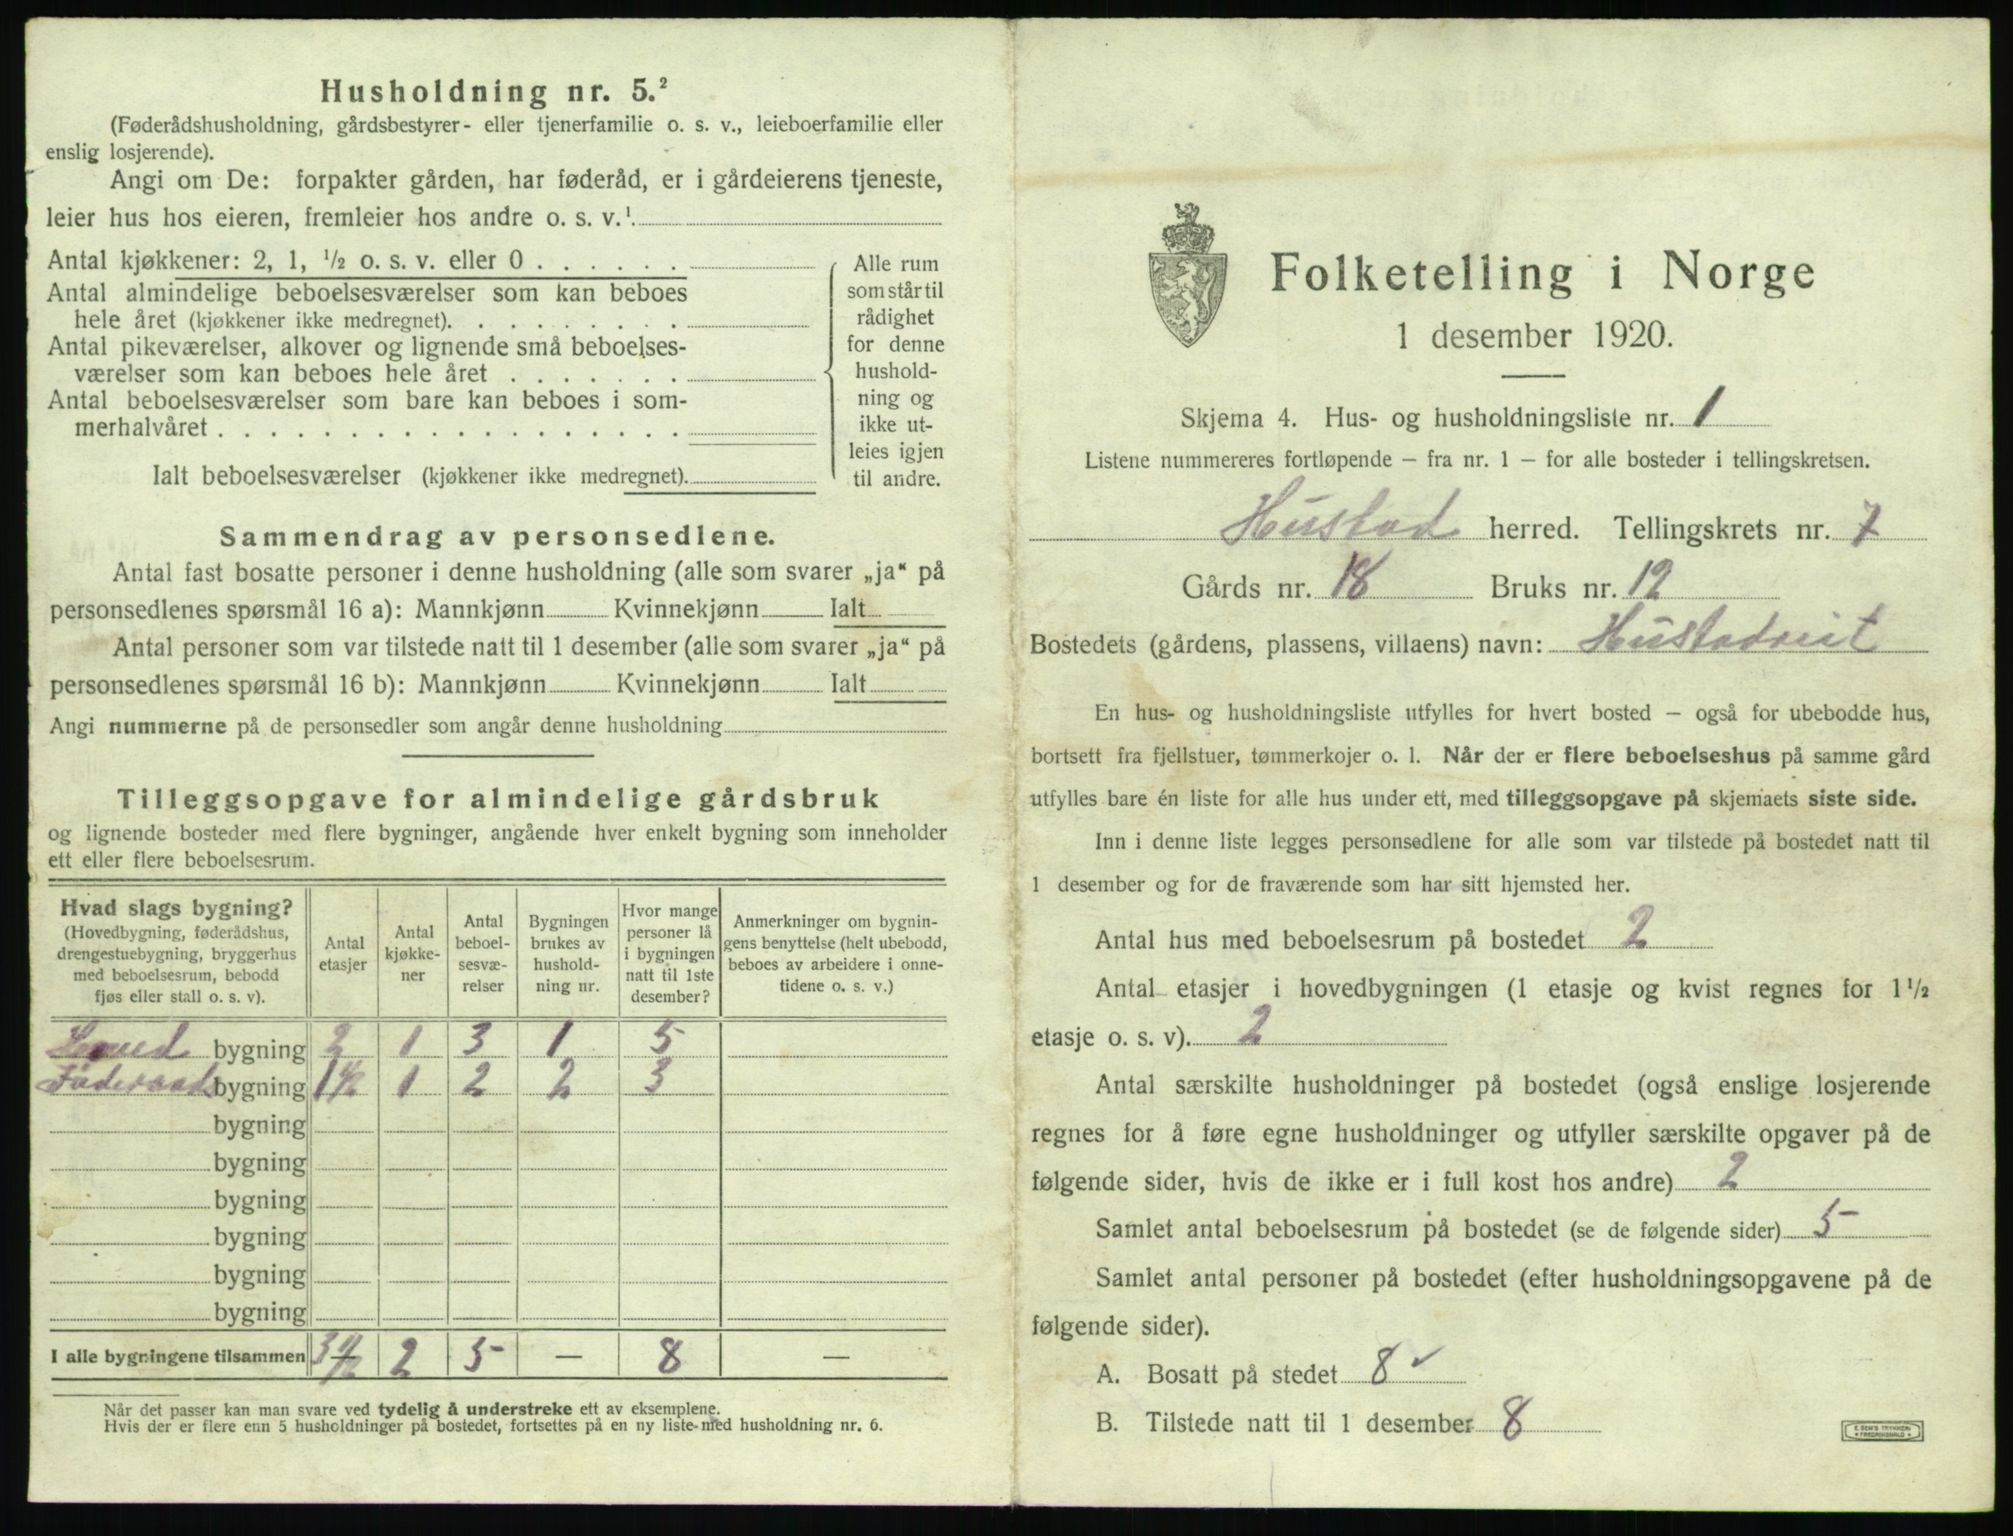 Husholdning nr. 5.²
(Føderådshusholdning, gårdsbestyrer- eller tjenerfamilie o. s. v., leieboerfamilie eller
enslig losjerende).
Angi om De: forpakter gården, har føderåd, er i gårdeierens tjeneste,
leier hus hos eieren, fremleier hos andre o. s. v.¹.
Antal kjøkkener: 2, 1, ½ o. s. v. eller 0 . . . . . .
Antal almindelige beboelsesværelser som kan beboes
hele året (kjøkkener ikke medregnet). . . . . . . . .
Antal pikeværelser, alkover og lignende små beboelses-
værelser som kan beboes hele året . . . . . . .
Antal beboelsesværelser som bare kan beboes i som-
merhalvåret . . . . . . . . . . . . . . . . . .
Ialt beboelsesværelser (kjøkkener ikke medregnet).
Alle rum
som står til
rådighet
for denne
hushold-
ning og
ikke ut-
leies igjen
til andre.
Sammendrag av personsedlene.
Antal fast bosatte personer i denne husholdning (alle som svarer „ja“ på
personsedlenes spørsmål 16 a): Mannkjønn Kvinnekjønn Ialt
Antal personer som var tilstede natt til 1 desember (alle som svarer „ja“ på
personsedlenes spørsmål 16 b): Mannkjønn Kvinnekjønn Ialt
Angi nummerne på de personsedler som angår denne husholdning
Tilleggsopgave for almindelige gårdsbruk
og lignende bosteder med flere bygninger, angående hver enkelt bygning som inneholder
ett eller flere beboelsesrum.
Hvad slags bygning?
(Hovedbygning, føderådshus,
drengestuebygning, bryggerhus
med beboelsesrum, bebodd
fjøs eller stall o. s. v).
Antal
etasjer
Antal
kjøkke-
ner
Antal
beboel-
sesvæ-
relser
Bygningen
brukes av
hushold-
ning nr.
Hvor mange
personer lå
i bygningen
natt til 1ste
desember?
Anmerkninger om bygnin-
gens benyttelse (helt ubebodd,
beboes av arbeidere i onne-
tidene o. s. v.)
bygning 2 1 3 1 5
Føderaads bygning 1½ 1 2 2 3
bygning
bygning
bygning
bygning
bygning
bygning
I alle bygningene tilsammen 3½ 2 5 — 8 —
Når det passer kan man svare ved tydelig å understreke ett av eksemplene.
Hvis der er flere enn 5 husholdninger på bostedet, fortsettes på en ny liste med husholdning nr. 6.
Folketelling i Norge
1 desember 1920.
Skjema 4. Hus- og husholdningsliste nr. 1
Listene nummereres fortløpende – fra nr. 1 – for alle bosteder i tellingskretsen.
Hustad herred. Tellingskrets nr. 7
Gårds nr. 18 Bruks nr. 12
Bostedets (gårdens, plassens, villaens) navn: Hustadveit
En hus- og husholdningsliste utfylles for hvert bosted – også for ubebodde hus,
bortsett fra fjellstuer, tømmerkojer o. l. Når der er flere beboelseshus på samme gård
utfylles bare én liste for alle hus under ett, med tilleggsopgave på skjemaets siste side.
Inn i denne liste legges personsedlene for alle som var tilstede på bostedet natt til
1 desember og for de fraværende som har sitt hjemsted her.
Antal hus med beboelsesrum på bostedet 2
Antal etasjer i hovedbygningen (1 etasje og kvist regnes for 1½
etasje o. s. v). 2
Antal særskilte husholdninger på bostedet (også enslige losjerende
regnes for å føre egne husholdninger og utfyller særskilte opgaver på de
følgende sider, hvis de ikke er i full kost hos andre) 2
Samlet antal beboelsesrum på bostedet (se de følgende sider) 5
Samlet antal personer på bostedet (efter husholdningsopgavene på de
følgende sider).
A. Bosatt på stedet 8 ✓
B. Tilstede natt til 1 desember 8